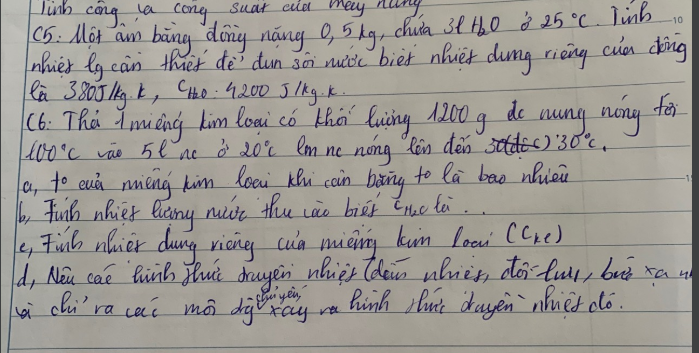 Tính công và công suất của máy nâng
C5: Một ấm bằng đồng nặng 0,5 kg, chứa 3l H2O ở 25°C. Tính
nhiệt lg cần thiết để đun sôi nước biết nhiệt dung riêng của đồng
là 380J/kg.k, CH2O. 4200 J/kg.k.
C6: Thả 1 miếng kim loại có khối lượng 1200g đc nung nóng tới
100°C vào 5l nc ở 20°C làm nc nóng lên đến 30°C.
a, to của miếng kim loại khi cân bằng to là bao nhiêu
b, Tính nhiệt lượng nước thu vào biết CH2O là ...
c, Tính nhiệt dung riêng của miếng kim loại (CKL)
d, Nêu các hình thức truyền nhiệt (dẫn nhiệt, đối lưu, bức xạ n
và chỉ ra các môi trg chuyên xảy ra hình thức truyền nhiệt đó.